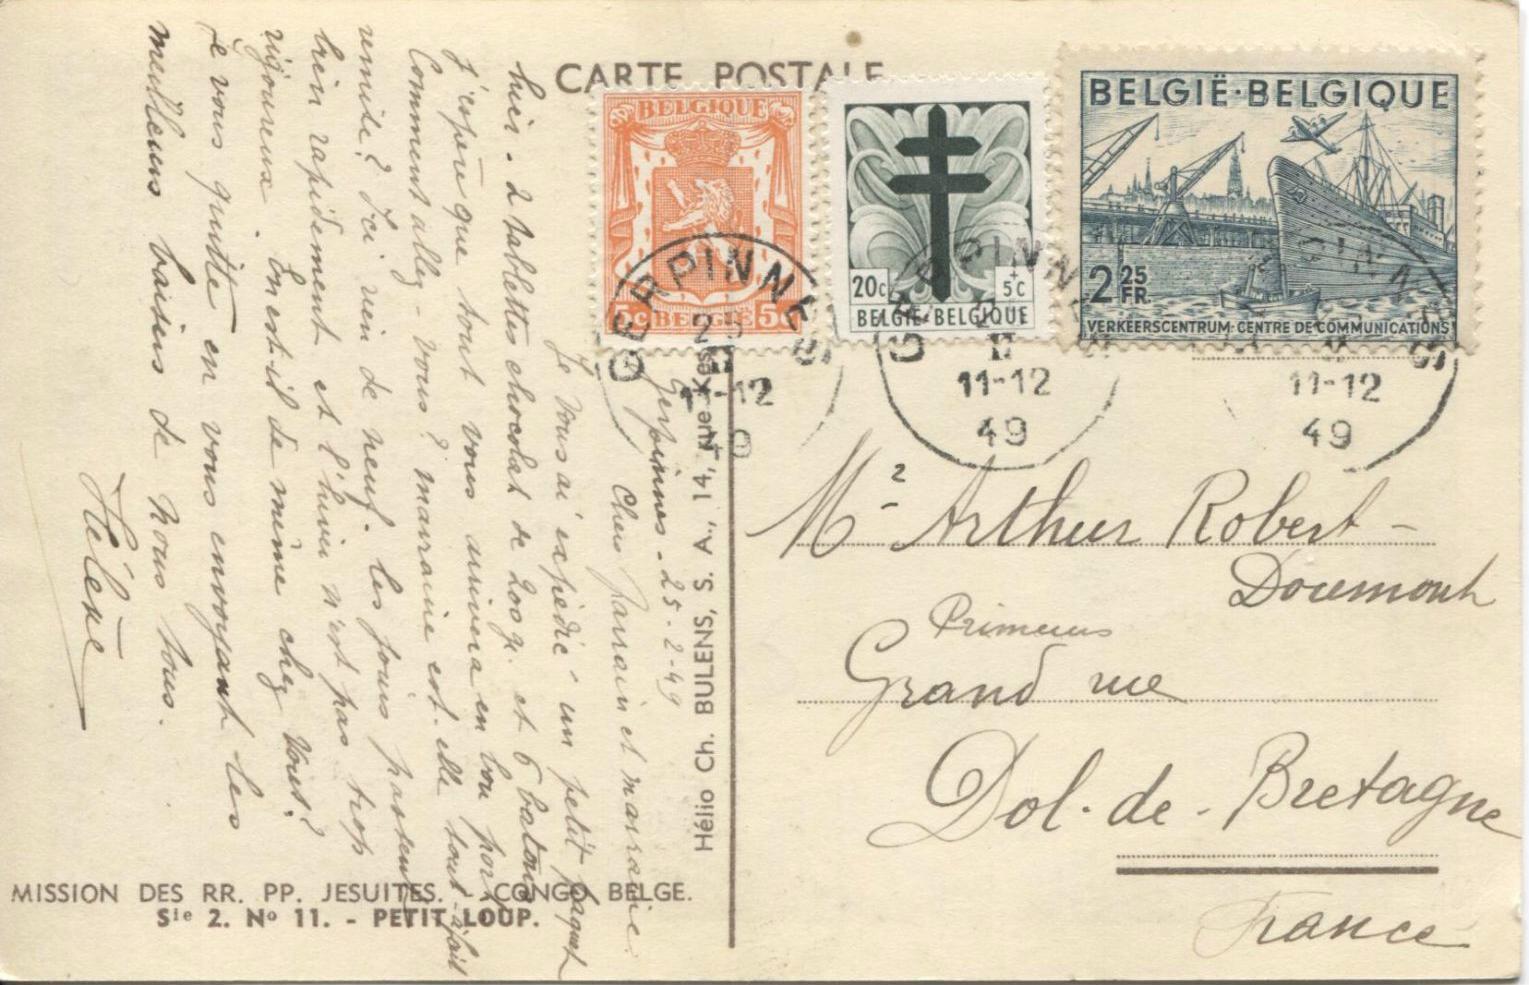 CARTE POSTALE
BELGIQUE
5c BELGIË 5c
20c
+
5c
BELGIË-BELGIQUE
BELGIË·BELGIQUE
2 25 FR.
VERKEERSCENTRUM·CENTRE DE COMMUNICATIONS
GERPINNES
25
II
11-12
49
GERPINNES
II
11-12
49
GERPINNES
11-12
49
Gerpinnes - 25-2-49
Chers parrain et marraine.
Je vous ai expédié un petit paquet
hier - 2 tablettes chocolat de 200 gr. et 6 batons
J'espère que tout vous arrivera en bon port.
Comment allez-vous? marraine est-elle tout-à-fait
remise? Ici rien de neuf. Les jours passent
bien rapidement et l'hiver n'est pas trop
rigoureux. En est-il de même chez vous?
Je vous quitte en vous envoyant les
meilleurs baisers de nous tous.
Hélène
Hélio Ch. BULENS, S. A., 14, rue Kes
MISSION DES RR. PP. JESUITES. - CONGO BELGE.
Sie 2. No 11. - PETIT LOUP.
Mr Arthur Robert-
Doumont
Primeurs
Grand rue
Dol-de-Bretagne
France